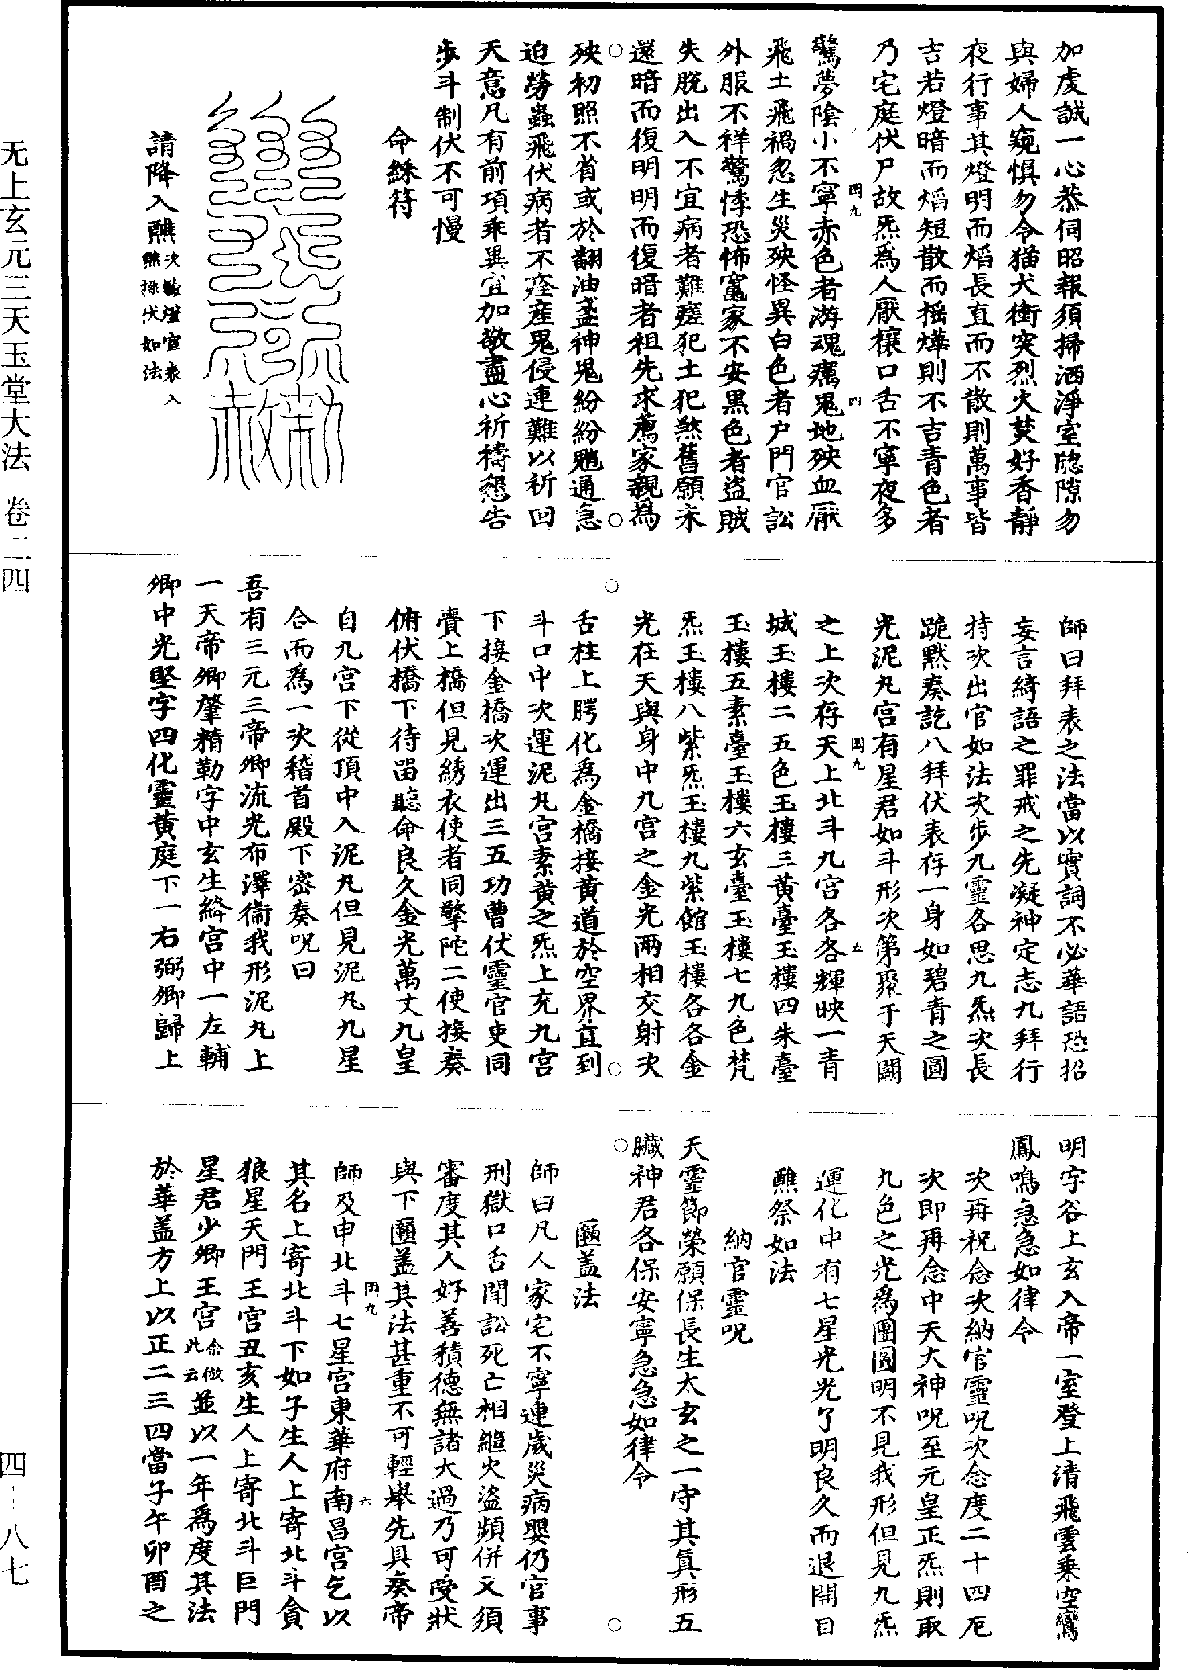 加虔誠一心恭伺昭報須掃洒淨室牕隙勿
與婦人窺惧勿令猫犬衝突烈火焚好香靜
夜行事其燈明而焰長直而不散則萬事皆
吉若燈暗而焰短散而摇燁則不吉青色者
乃宅庭伏尸故炁爲人厭穰口舌不寧夜多
驚夢陰小不寧赤色者游魂癘鬼地殃血厭
飛土飛禍忽生災殃怪異白色者户門官訟
外服不祥驚悸恐怖竃家不安黑色者盗賊
失脫出入不宜病者難瘥犯土犯煞舊願未
還暗而復明明而復暗者祖先求薦家親爲
殃初照不省或於翻油盞神鬼紛紛魈通急
迫勞蟲飛伏病者不痊産鬼侵連難以祈回
天意凡有前項乖異宜加敬盡心祈禱懇告
步斗制伏不可慢
命繇符
請降入醮
師曰拜表之法當以實詞不必華語恐招
妄言綺語之罪戒之先凝神定志九拜行
持次出官如法次步九靈各思九炁次長
跪默奏訖八拜伏表存一身如碧青之圓
光泥丸宫有星君如斗形次第聚于天關
之上次存天上北斗九宫各各輝映一青
城玉樓二五色玉樓三黄臺玉樓四朱臺
玉樓五素臺玉樓六玄臺玉樓七九色梵
炁玉樓八紫炁玉樓九紫館玉樓各各金
光在天與身中九宫之金光兩相交射次
舌柱上腭化爲金橋接黄道於空界直到
斗口中次運泥丸宫素黄之炁上充九宫
下接金橋次運出三五功曹伏靈官吏同
賫上橋但見綉衣使者同擎陀二使接奏
俯伏橋下待㽞聽命良久金光萬丈九皇
自九宫下從頂中入泥丸但見泥丸九星
合而爲一次稽首殿下密奏呪曰
吾有三元三帝卿流光布澤衛我形泥丸上
一天帝卿肇精勒字中玄生絳宫中一左輔
卿中光堅字四化靈黄庭下一右弼卿歸上
明字谷上玄入帝一室登上清飛雲乗空鸞
鳳鳴急急如律令
次再祝念次納官靈呪次念度二十四厄
次即再念中天大神呪至元皇正炁則取
九色之光爲團圓明不見我形但見九炁
運化中有七星光光了明良久而退開目
醮祭如法
納官靈呪
天靈節榮願保長生太玄之一守其真形五
臟神君各保安寧急急如律令
匽盖法
師曰凡人家宅不寧連歲災病嬰仍官事
刑獄口舌鬧訟死亡相繼火盗頻併又須
審度其人好善積德無諸大過乃可受狀
與下匽盖其法甚重不可輕舉先具奏帝
師及申北斗七星宫東華府南昌宫乞以
其名上寄北斗下如子生人上寄北斗貪
狼星天門王宫丑亥生人上寄北斗巨門
星君少卿王宫余倣此云並以一年爲度其法
於華盖方上以正二三四當子午卯酉之
无上玄元三天玉堂大法 卷二四
四—八七